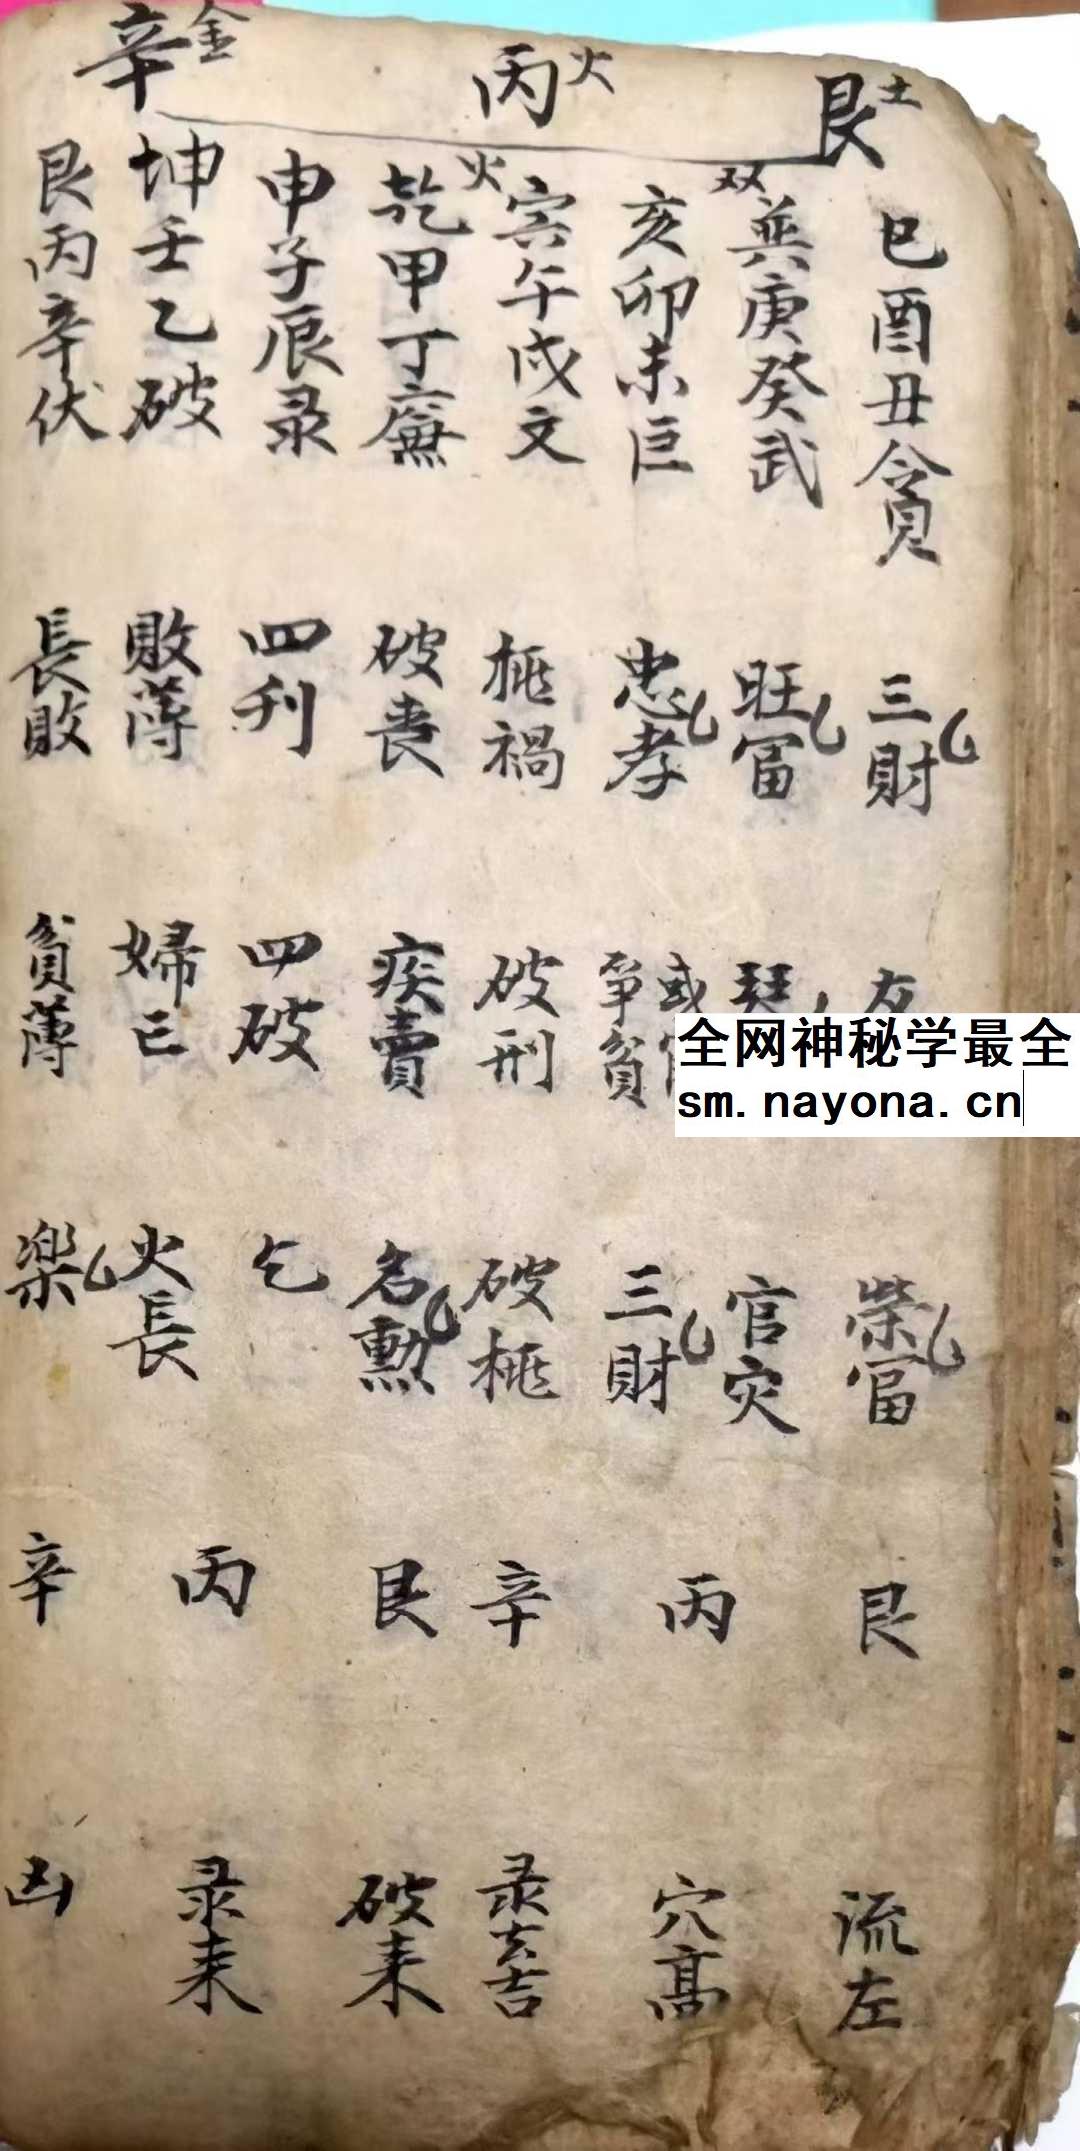 艮土
丙火
辛金
巳酉丑貪
双
巽庚癸武
亥卯未巨
寅午戌文
火
乾甲丁廉
申子辰录
坤壬乙破
艮丙辛伏
三財
旺冨
忠孝
桃禍
破丧
四刋
敗薄
長敗
或
爭貧
破刑
疾賣
四破
婦亡
貧薄
荣冨
官灾
三財
破桃
名勲
乞
火長
楽
艮
丙
辛
艮
丙
辛
流左
穴髙
录去吉
破来
录来
凶
全网神秘学最全
sm.nayona.cn